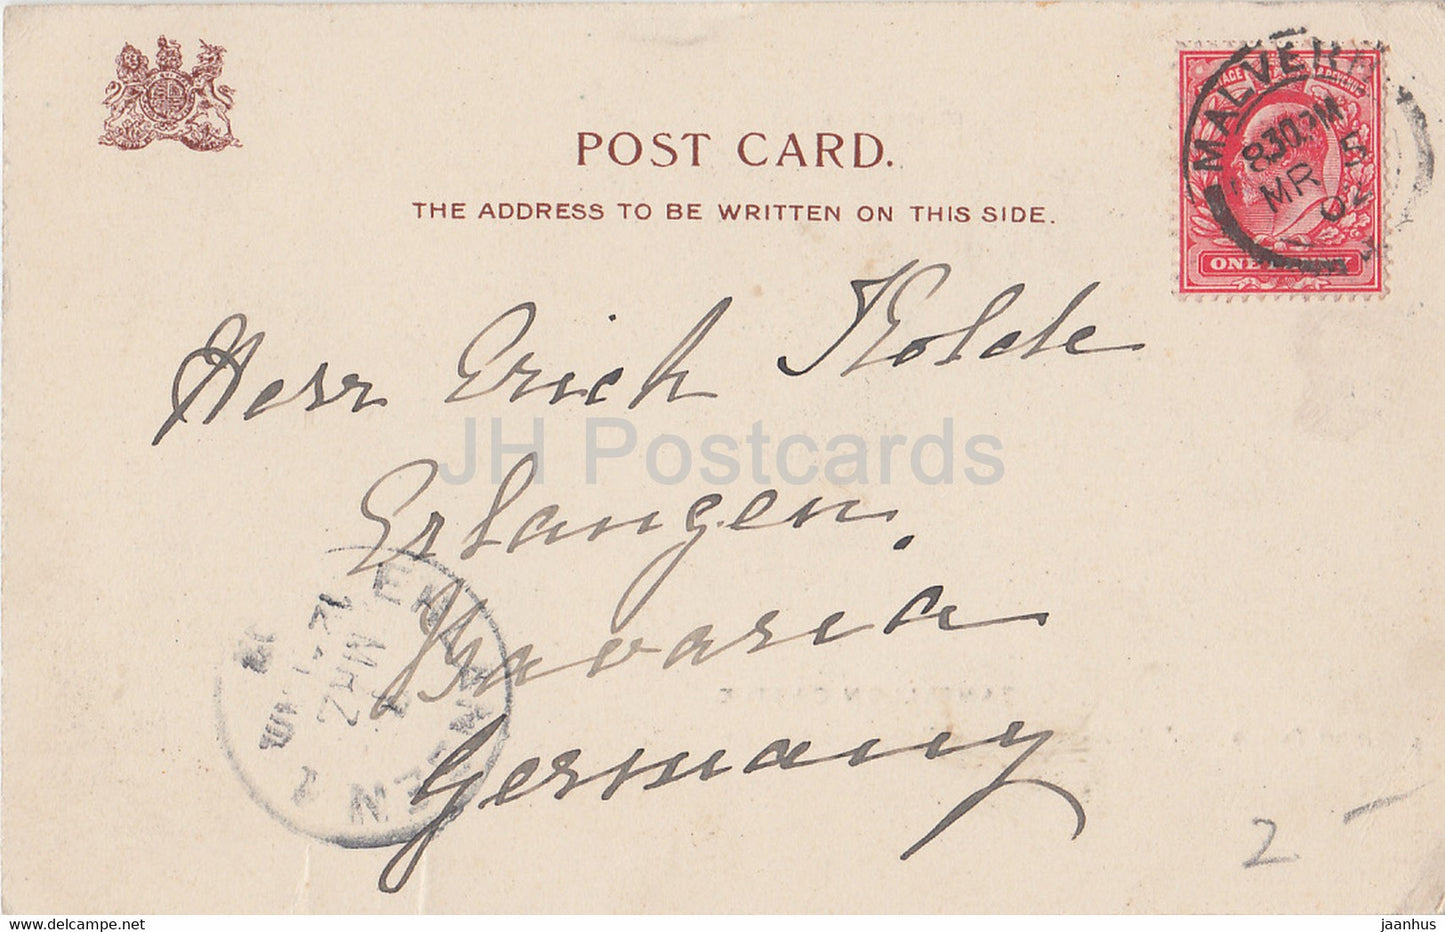 POST CARD.
THE ADDRESS TO BE WRITTEN ON THIS SIDE.
MALVERN
8.30 PM
MR 5
02
ONE PENNY
Herr Erich Kolde
Erlangen.
Bavaria
Germany
JH Postcards
ERLANGEN 1
2
hippostcard.com
jaanhus